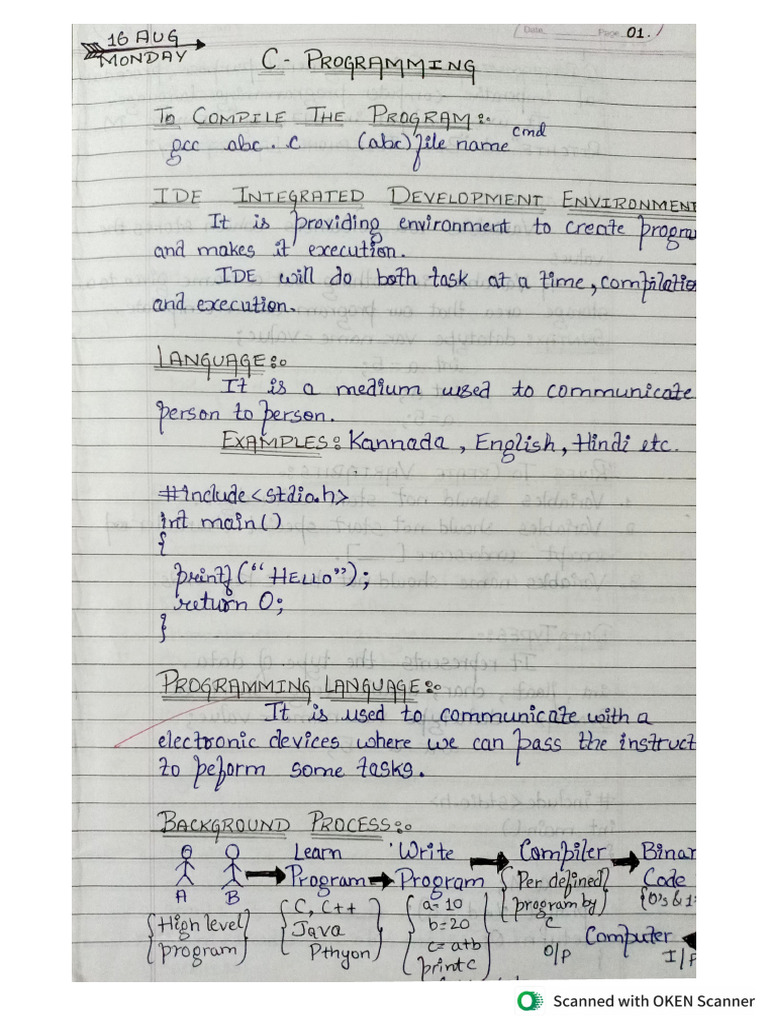 16 AUG
MONDAY
Date Page 01.
C - PROGRAMMING
TO COMPILE THE PROGRAM:-
gcc abc.c (abc) file name cmd
IDE INTEGRATED DEVELOPMENT ENVIRONMENT
It is providing environment to create progra
and makes it execution.
IDE will do both task at a time, compilatio
and execution.
LANGUAGE:-
It is a medium used to communicate
person to person.
EXAMPLES: Kannada, English, Hindi etc.
#include<stdio.h>
int main()
{
printf("HELLO");
return 0;
}
PROGRAMMING LANGUAGE:-
It is used to communicate with a
electronic devices where we can pass the instruct
to peform some tasks.
BACKGROUND PROCESS:-
Learn Write Compiler Binar
Program Program {Per defined Code
A B program by} {0's & 1
{High level program} {C, C++ Java Pthyon} {a=10 b=20 c=a+b print c} C
O/P Computer I/P
Scanned with OKEN Scanner